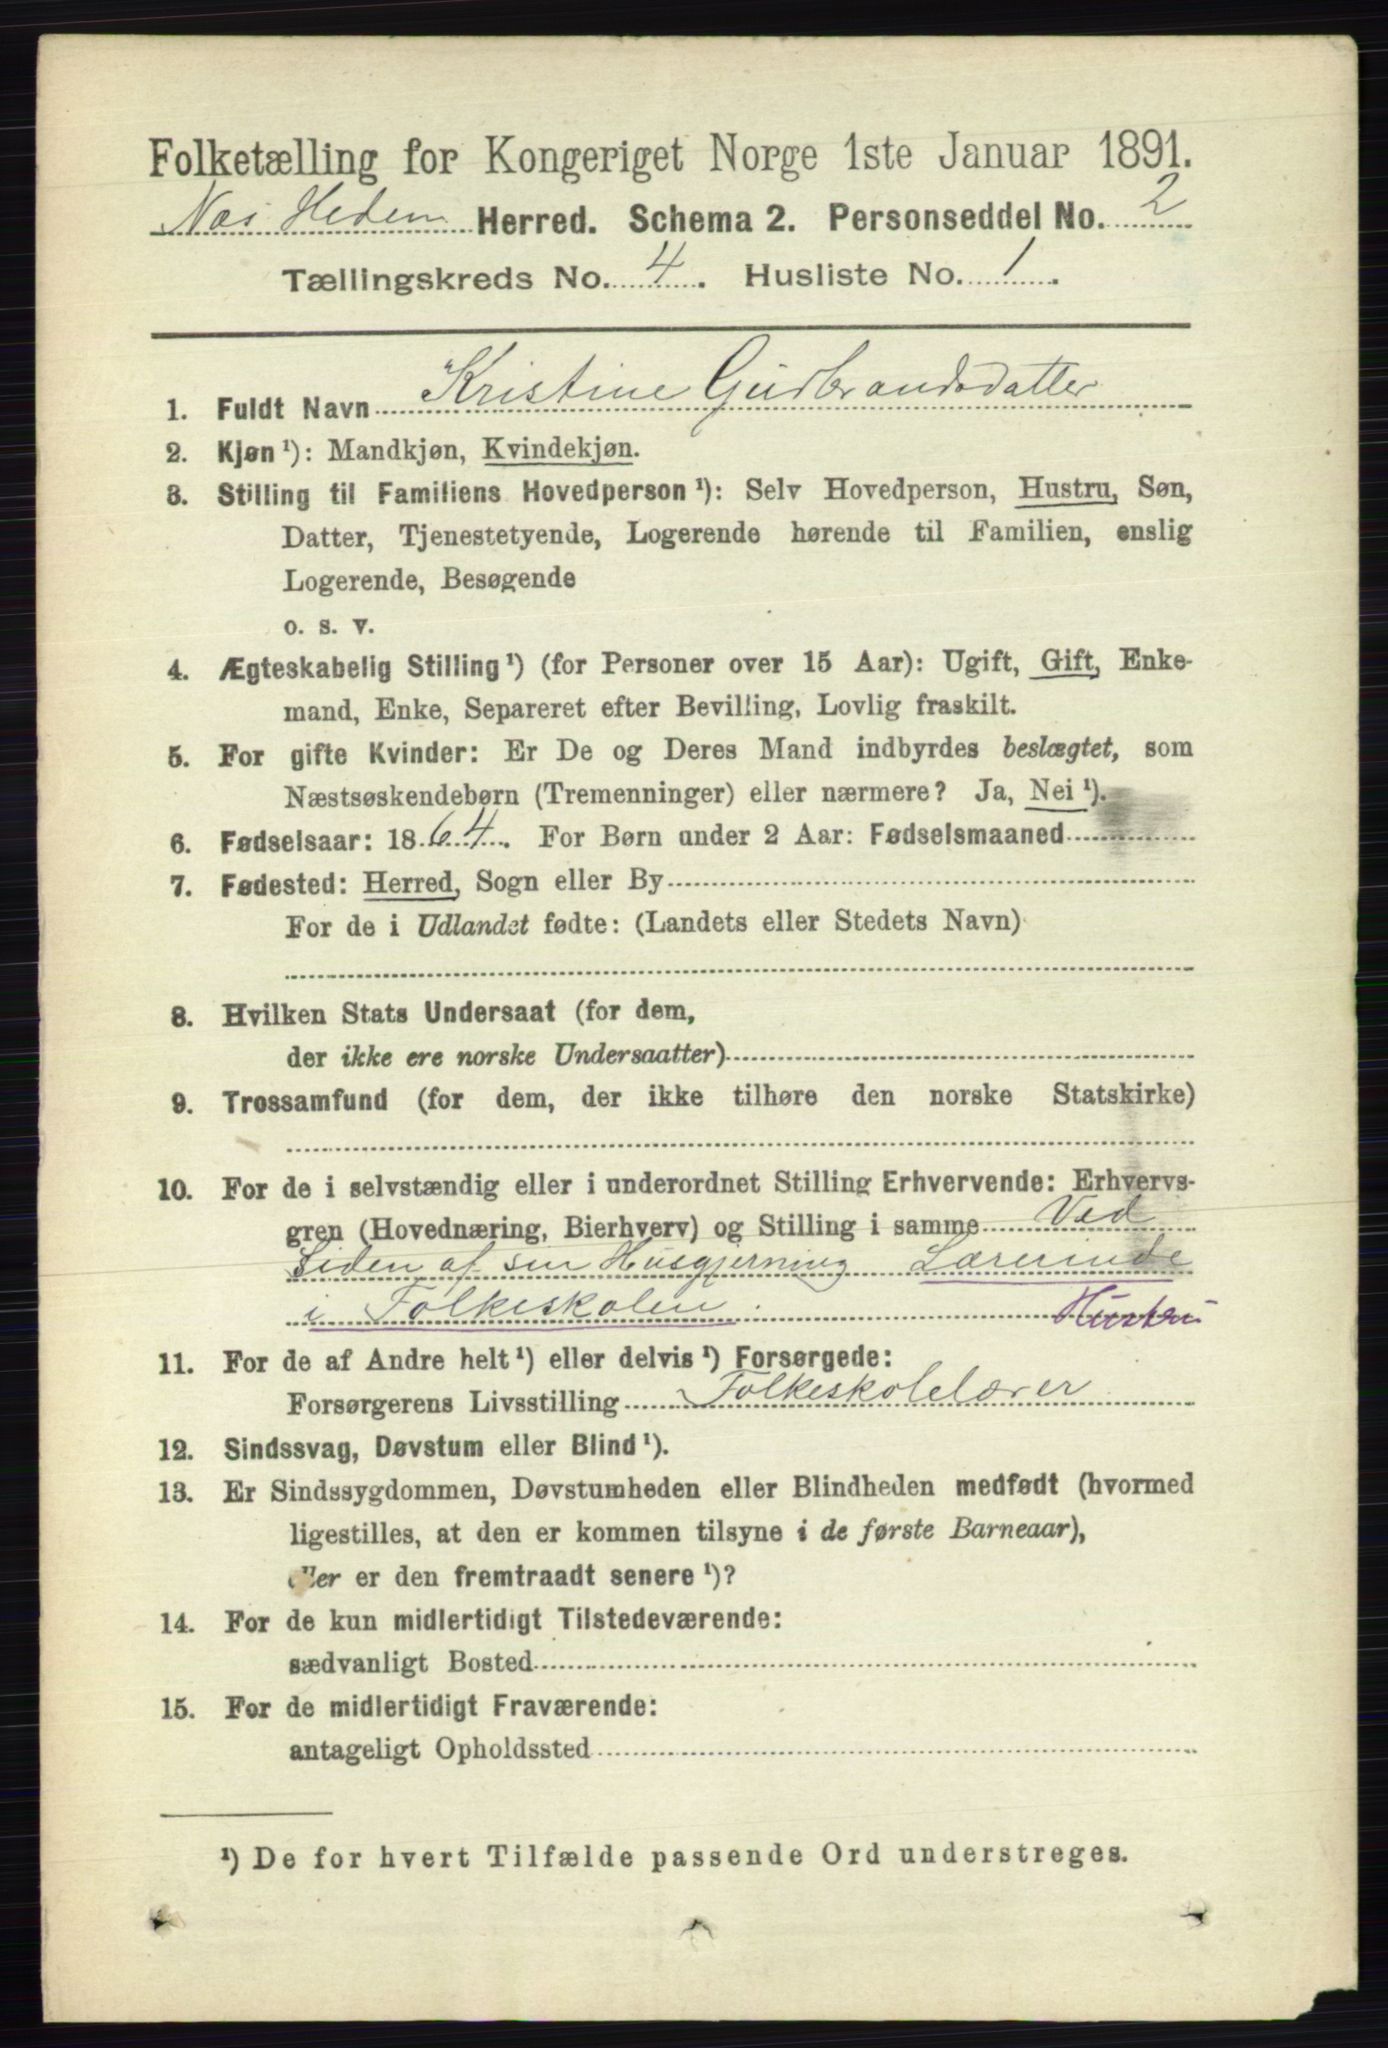 Folketælling for Kongeriget Norge 1ste Januar 1891.
Næs Hedem Herred. Schema 2. Personseddel No. 2
Tællingskreds No. 4. Husliste No. 1.
1. Fuldt Navn Kristine Gudbrandsdatter
2. Kjøn¹): Mandkjøn, Kvindekjøn.
3. Stilling til Familiens Hovedperson¹): Selv Hovedperson, Hustru, Søn,
Datter, Tjenestetyende, Logerende hørende til Familien, enslig
Logerende, Besøgende
o. s. v.
4. Ægteskabelig Stilling¹) (for Personer over 15 Aar): Ugift, Gift, Enke-
mand, Enke, Separeret efter Bevilling, Lovlig fraskilt.
5. For gifte Kvinder: Er De og Deres Mand indbyrdes beslægtet, som
Næstsøskendebørn (Tremenninger) eller nærmere? Ja, Nei¹).
6. Fødselsaar: 1864. For Børn under 2 Aar: Fødselsmaaned
7. Fødested: Herred, Sogn eller By
For de i Udlandet fødte: (Landets eller Stedets Navn)
8. Hvilken Stats Undersaat (for dem,
der ikke ere norske Undersaatter)
9. Trossamfund (for dem, der ikke tilhøre den norske Statskirke)
10. For de i selvstændig eller i underordnet Stilling Erhvervende: Erhvervs-
gren (Hovednæring, Bierhverv) og Stilling i samme Ved
Siden af sin Husgjerning Lærerinde
i Folkeskolen. Hustru
11. For de af Andre helt¹) eller delvis¹) Forsørgede:
Forsørgerens Livsstilling Folkeskolelærer
12. Sindssvag, Døvstum eller Blind¹).
13. Er Sindssygdommen, Døvstumheden eller Blindheden medfødt (hvormed
ligestilles, at den er kommen tilsyne i de første Barneaar),
eller er den fremtraadt senere¹)?
14. For de kun midlertidigt Tilstedeværende:
sædvanligt Bosted
15. For de midlertidigt Fraværende:
antageligt Opholdssted
¹) De for hvert Tilfælde passende Ord understreges.